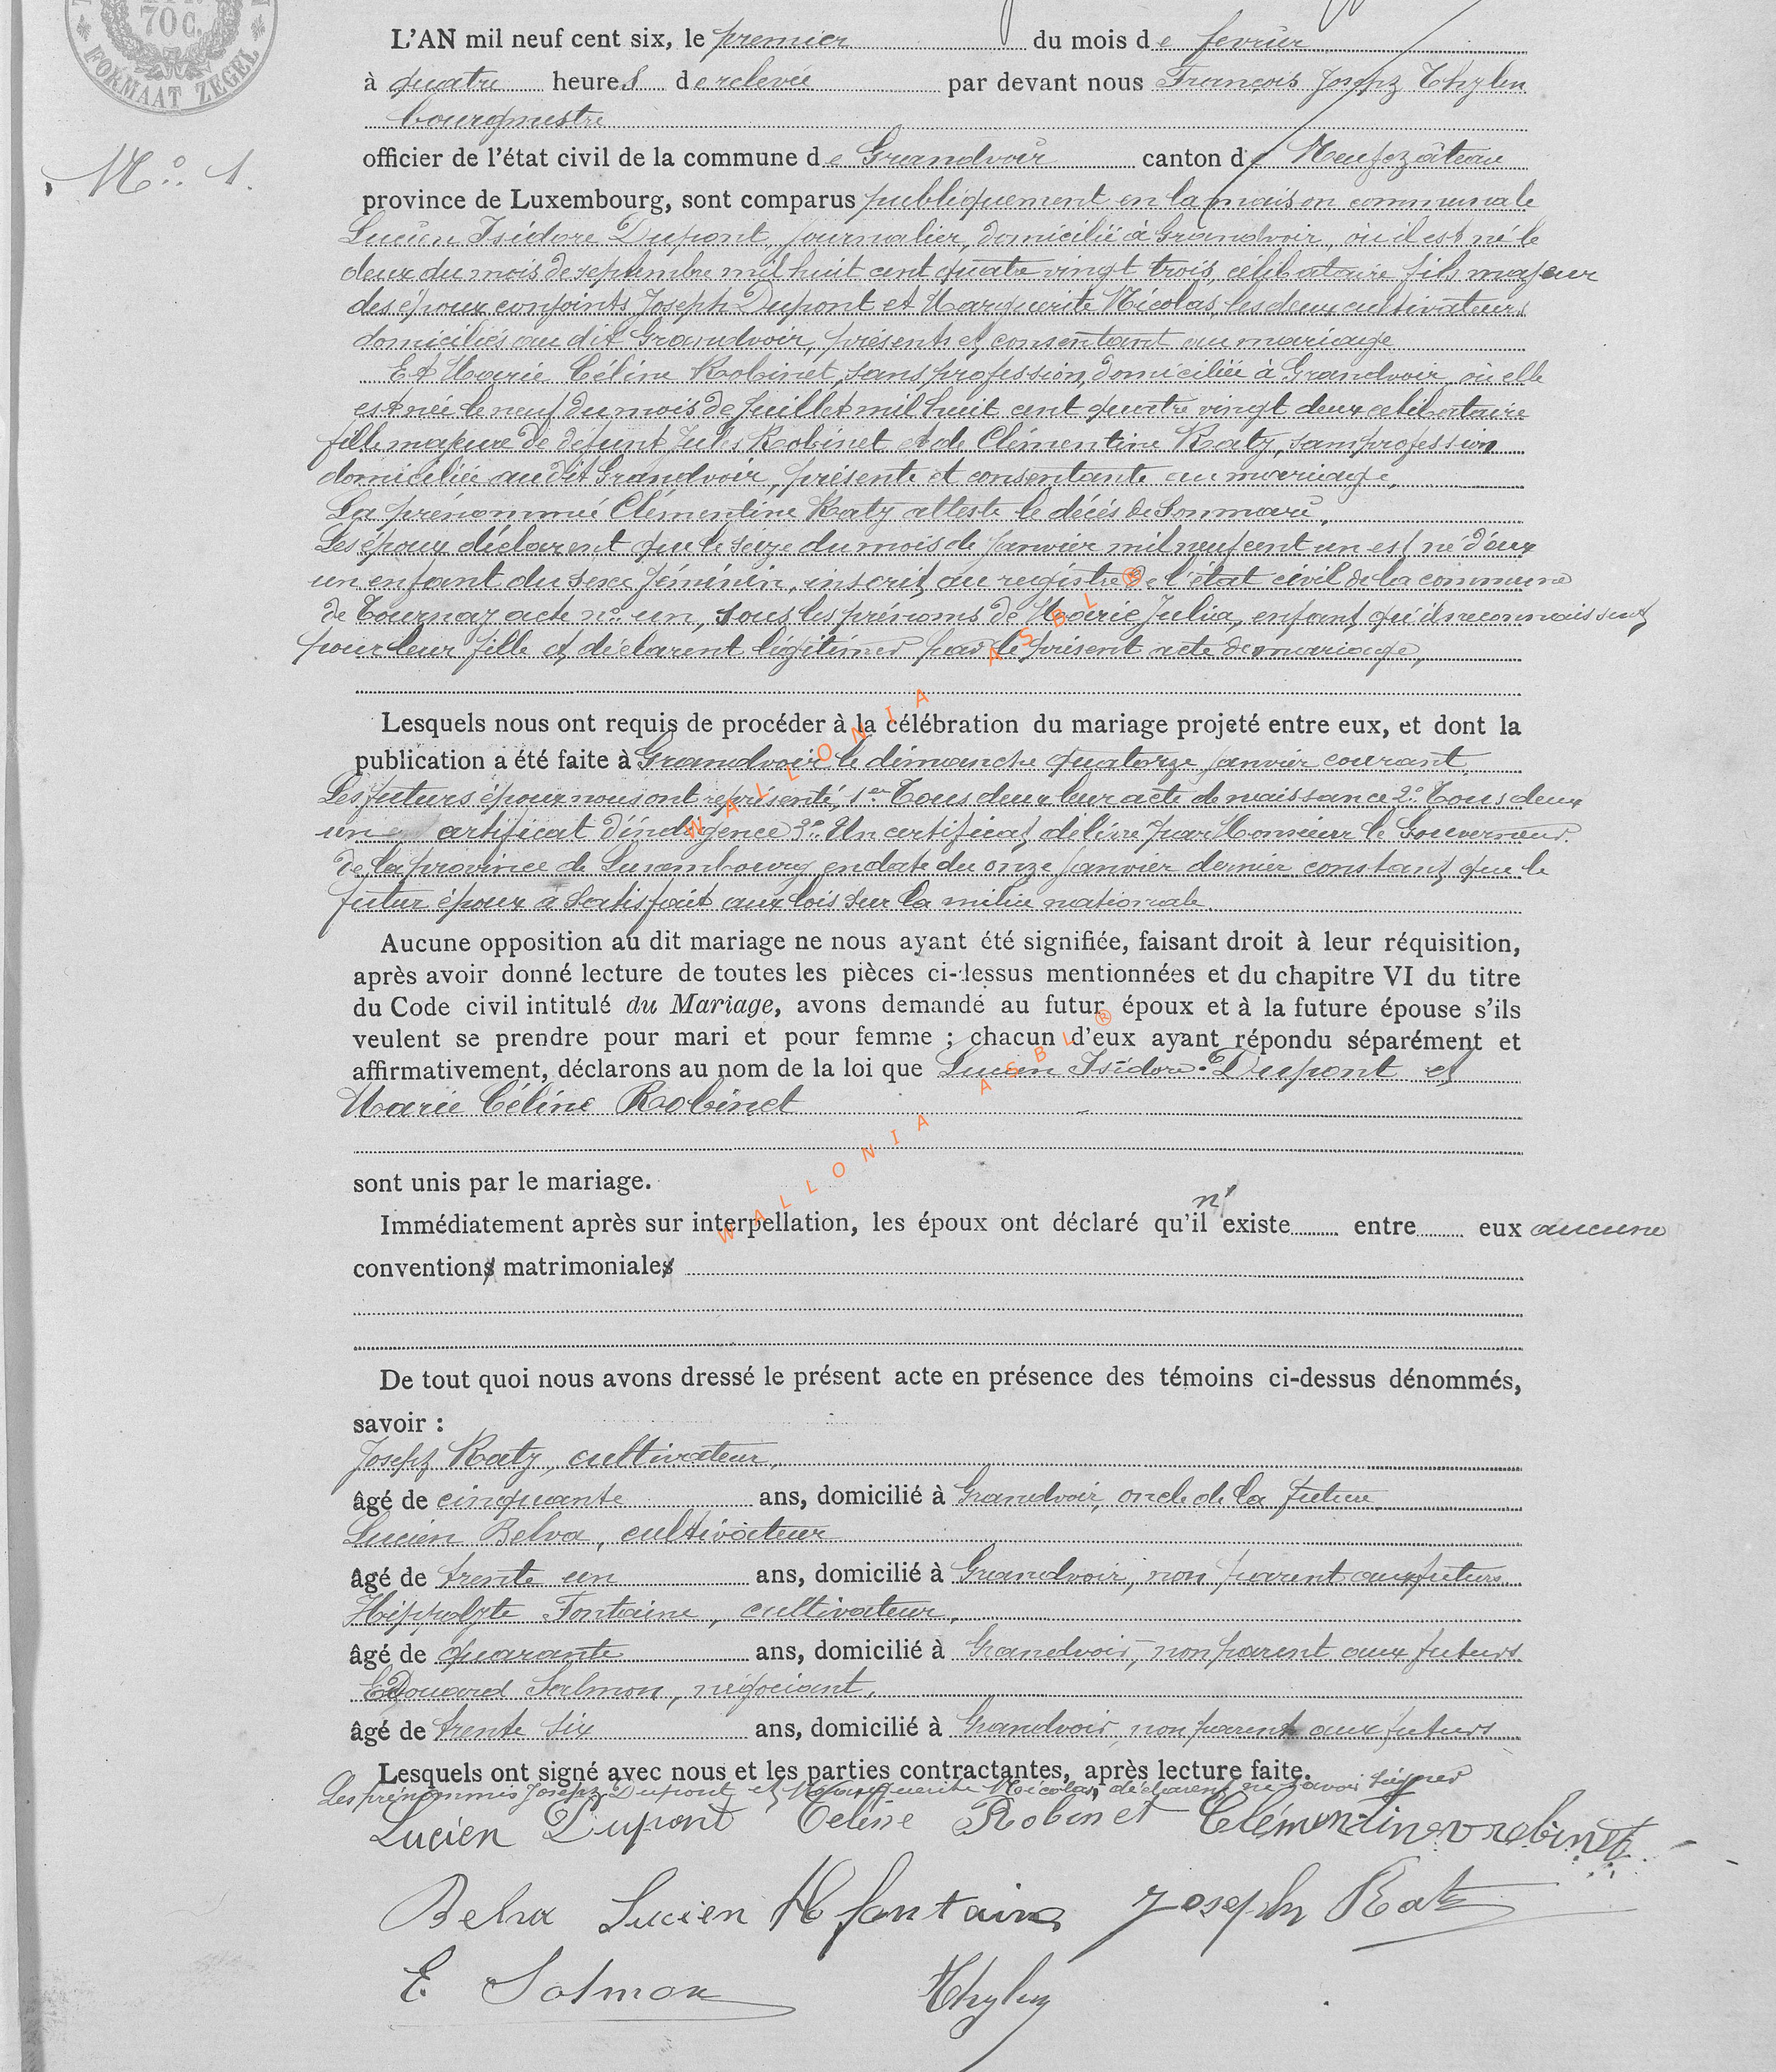 70 C.
FORMAAT ZEGEL
L'AN mil neuf cent six, le premier du mois de fevrier
à quatre heures de relevée par devant nous François Joseph Thylin
bourgmestre
N° 1.
officier de l'état civil de la commune de Grandvoir canton de Neufchâteau
province de Luxembourg, sont comparus publiquement en la maison communale
Lucien Isidore Dupont, journalier, domicilié à Grandvoir, où il est né le
deux du mois de septembre mil huit cent quatre vingt trois, célibataire fils majeur
des époux conjoints Joseph Dupont et Marguerite Nicolas, les deux cultivateurs
domiciliés au dit Grandvoir, présents et consentant au mariage
Et Marie Céline Robinet, sans profession, domiciliée à Grandvoir, où elle
est née le neuf du mois de juillet mil huit cent quatre vingt deux celibataire
fille majeure de défunt Jules Robinet et de Clémentine Katz, sans profession
domiciliée au dit Grandvoir, présente et consentante au mariage,
La prénommée Clémentine Katz atteste le décès de son mari,
Les époux déclarent que le seize du mois de janvier mil neuf cent un est né d'eux
un enfant du sexe féminin, inscrit au registre de l'état civil de la commune
de Tournay acte n° un, sous les prénoms de Marie Julia, enfant qu'ils reconnaissent
pour leur fille et déclarent légitimer par le présent acte de mariage,
Lesquels nous ont requis de procéder à la célébration du mariage projeté entre eux, et dont la
publication a été faite à Grandvoir le dimanche quatorze janvier courant,
Les futurs époux nous ont représenté, 1er Tous deux leur acte de naissance 2° Tous deux
un certificat d'indigence 3° Un certificat délivré par Monsieur le Gouverneur
de la province de Luxembourg en date du onze janvier dernier constant que le
futur époux a satisfait aux lois sur la milice nationale.
Aucune opposition au dit mariage ne nous ayant été signifiée, faisant droit à leur réquisition,
après avoir donné lecture de toutes les pièces ci-dessus mentionnées et du chapitre VI du titre
du Code civil intitulé du Mariage, avons demandé au futur époux et à la future épouse s'ils
veulent se prendre pour mari et pour femme ; chacun d'eux ayant répondu séparément et
affirmativement, déclarons au nom de la loi que Lucien Isidore Dupont et
Marie Céline Robinet
sont unis par le mariage.
Immédiatement après sur interpellation, les époux ont déclaré qu'il n'existe entre eux aucune
conventions matrimoniales
De tout quoi nous avons dressé le présent acte en présence des témoins ci-dessus dénommés,
savoir :
Joseph Katz, cultivateur,
âgé de cinquante ans, domicilié à Grandvoir, oncle de la future
Lucien Belva, cultivateur
âgé de trente un ans, domicilié à Grandvoir, non parent aux futurs
Hippolyte Fontaine, cultivateur,
âgé de quarante ans, domicilié à Grandvoir, non parent aux futurs
Edouard Salmon, négociant,
âgé de trente six ans, domicilié à Grandvoir, non parent aux futurs
Lesquels ont signé avec nous et les parties contractantes, après lecture faite.
Les prénommés Joseph Dupont et Marguerite Nicolas, déclarent ne savoir signer
Lucien Dupont Celine Robinet Clémentine
Belva Lucien H fontaine Joseph Katz
E. Salmon Thylin
WALLONIA ASBL ®
WALLONIA ASBL ®